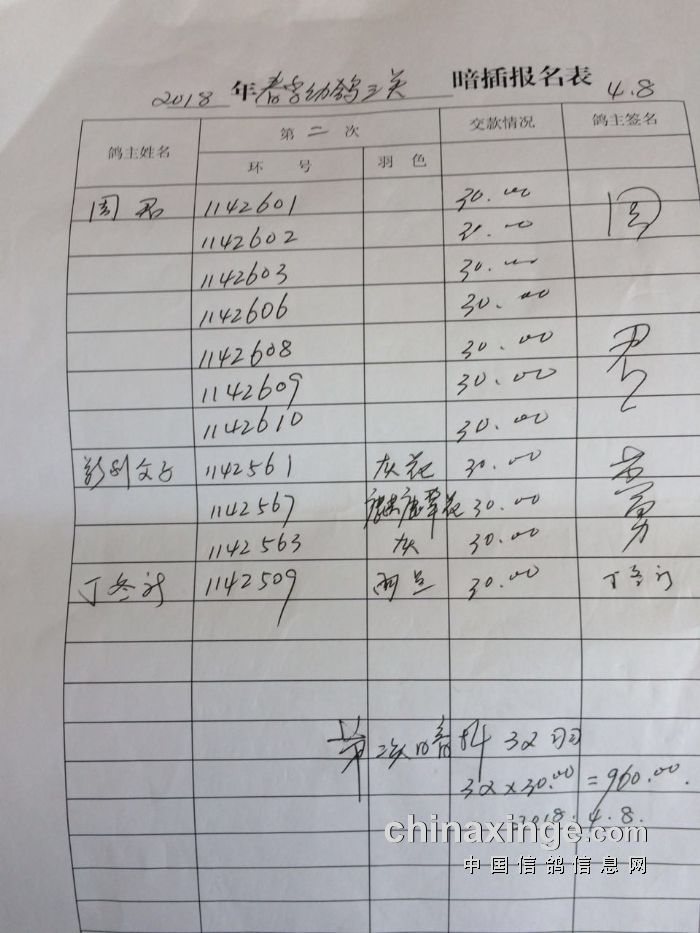 2018 年春季幼鸽三关 暗插报名表 4.8
鸽主姓名 第二次 交款情况 鸽主签名
环 号 羽 色
周君 1142601 30.00 周
1142602 30.00
1142603 30.00
1142606 30.00
1142608 30.00 君
1142609 30.00
1142610 30.00
1142561 灰花 30.00
1142567 30.00
1142563 灰 30.00
丁冬新 1142509 雨点 30.00 丁冬新
第二次暗插 32羽
32×30.00=960.00.
2018.4.8.
chinaxinge.com
中国信鸽信息网